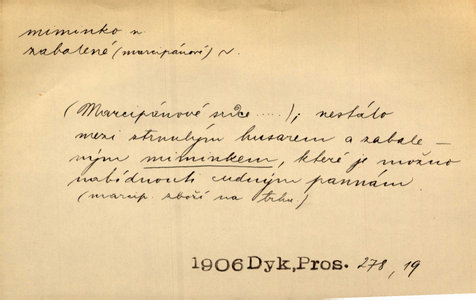 miminko n.
zabalené (marcipánové) ~.
(Marcipánové .....); nestálo
mezi strnulým husarem a zabale-
ným miminkem, které je možno
nabídnouti cudným pannám
(marcip. zboží na trhu.)
1906 Dyk, Pros. 278, 19